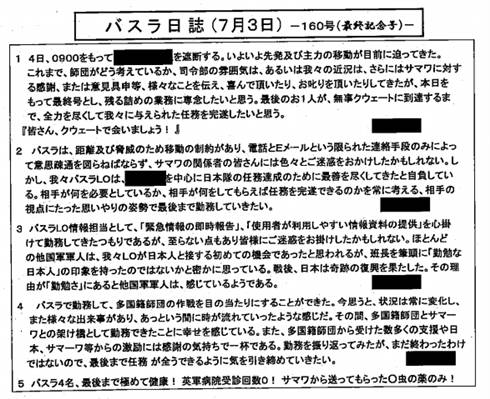 バスラ日誌(7月3日) −160号(最終記念号)−
1 4日、0900をもって を遮断する。いよいよ先発及び主力の移動が目前に迫ってきた。
これまで、師団がどう考えているか、司令部の雰囲気は、あるいは我々の近況は、さらにはサマワに対す
る感謝、または意見具申等、様々なことを伝え、喜んで頂いたり、お叱りを頂いたりしてきたが、本日を
もって最終号とし、残る詰めの業務に専念したいと思う。最後のお1人が、無事クウェートに到達するま
で、全力を尽くして我々に与えられた任務を完遂したいと思う。
『皆さん、クウェートで会いましょう!』
2 バスラは、距離及び脅威のため移動の制約があり、電話とEメールという限られた連絡手段のみによっ
て意思疎通を図らねばならず、サマワの関係者の皆さんには色々とご迷惑をおかけしたかもしれない。し
かし、我々バスラLOは、 を中心に日本隊の任務達成のために最善を尽くしてきたと自負してい
る。相手が何を必要としているか、相手が何をしてもらえば任務を完遂できるのかを常に考える、相手の
視点にたった思いやりの姿勢で最後まで勤務していきたい。
3 バスラLO情報担当として、「緊急情報の即時報告」、「使用者が利用しやすい情報資料の提供」を心掛
けて勤務してきたつもりであるが、至らない点もあり皆様にご迷惑をお掛けしたかもしれない。ほとんど
の他国軍軍人は、我々LOが日本人と接する初めての機会であったと思われるが、班長を筆頭に「勤勉な
日本人」の印象を持ったのではないかと密かに思っている。戦後、日本は奇跡の復興を果たした。その理
由が「勤勉さ」にあると他国軍軍人は、感じているようである。
4 バスラで勤務して、多国籍師団の作戦を目の当たりにすることができた。今思うと、状況は常に変化し、
また様々な出来事があり、あっという間に時が流れていったような感じだ。その間、多国籍師団とサマー
ワとの架け橋として勤務できたことに幸せを感じている。また、多国籍師団から受けた数多くの支援や日
本、サマーワ等からの激励には感謝の気持ちで一杯である。勤務を振り返ってみたが、まだ終わったわけ
ではないので、最後まで任務が全うできるように気を引き締めていきたい。
5 バスラ4名、最後まで極めて健康! 英軍病院受診回数0! サマワから送ってもらった〇虫の薬のみ!